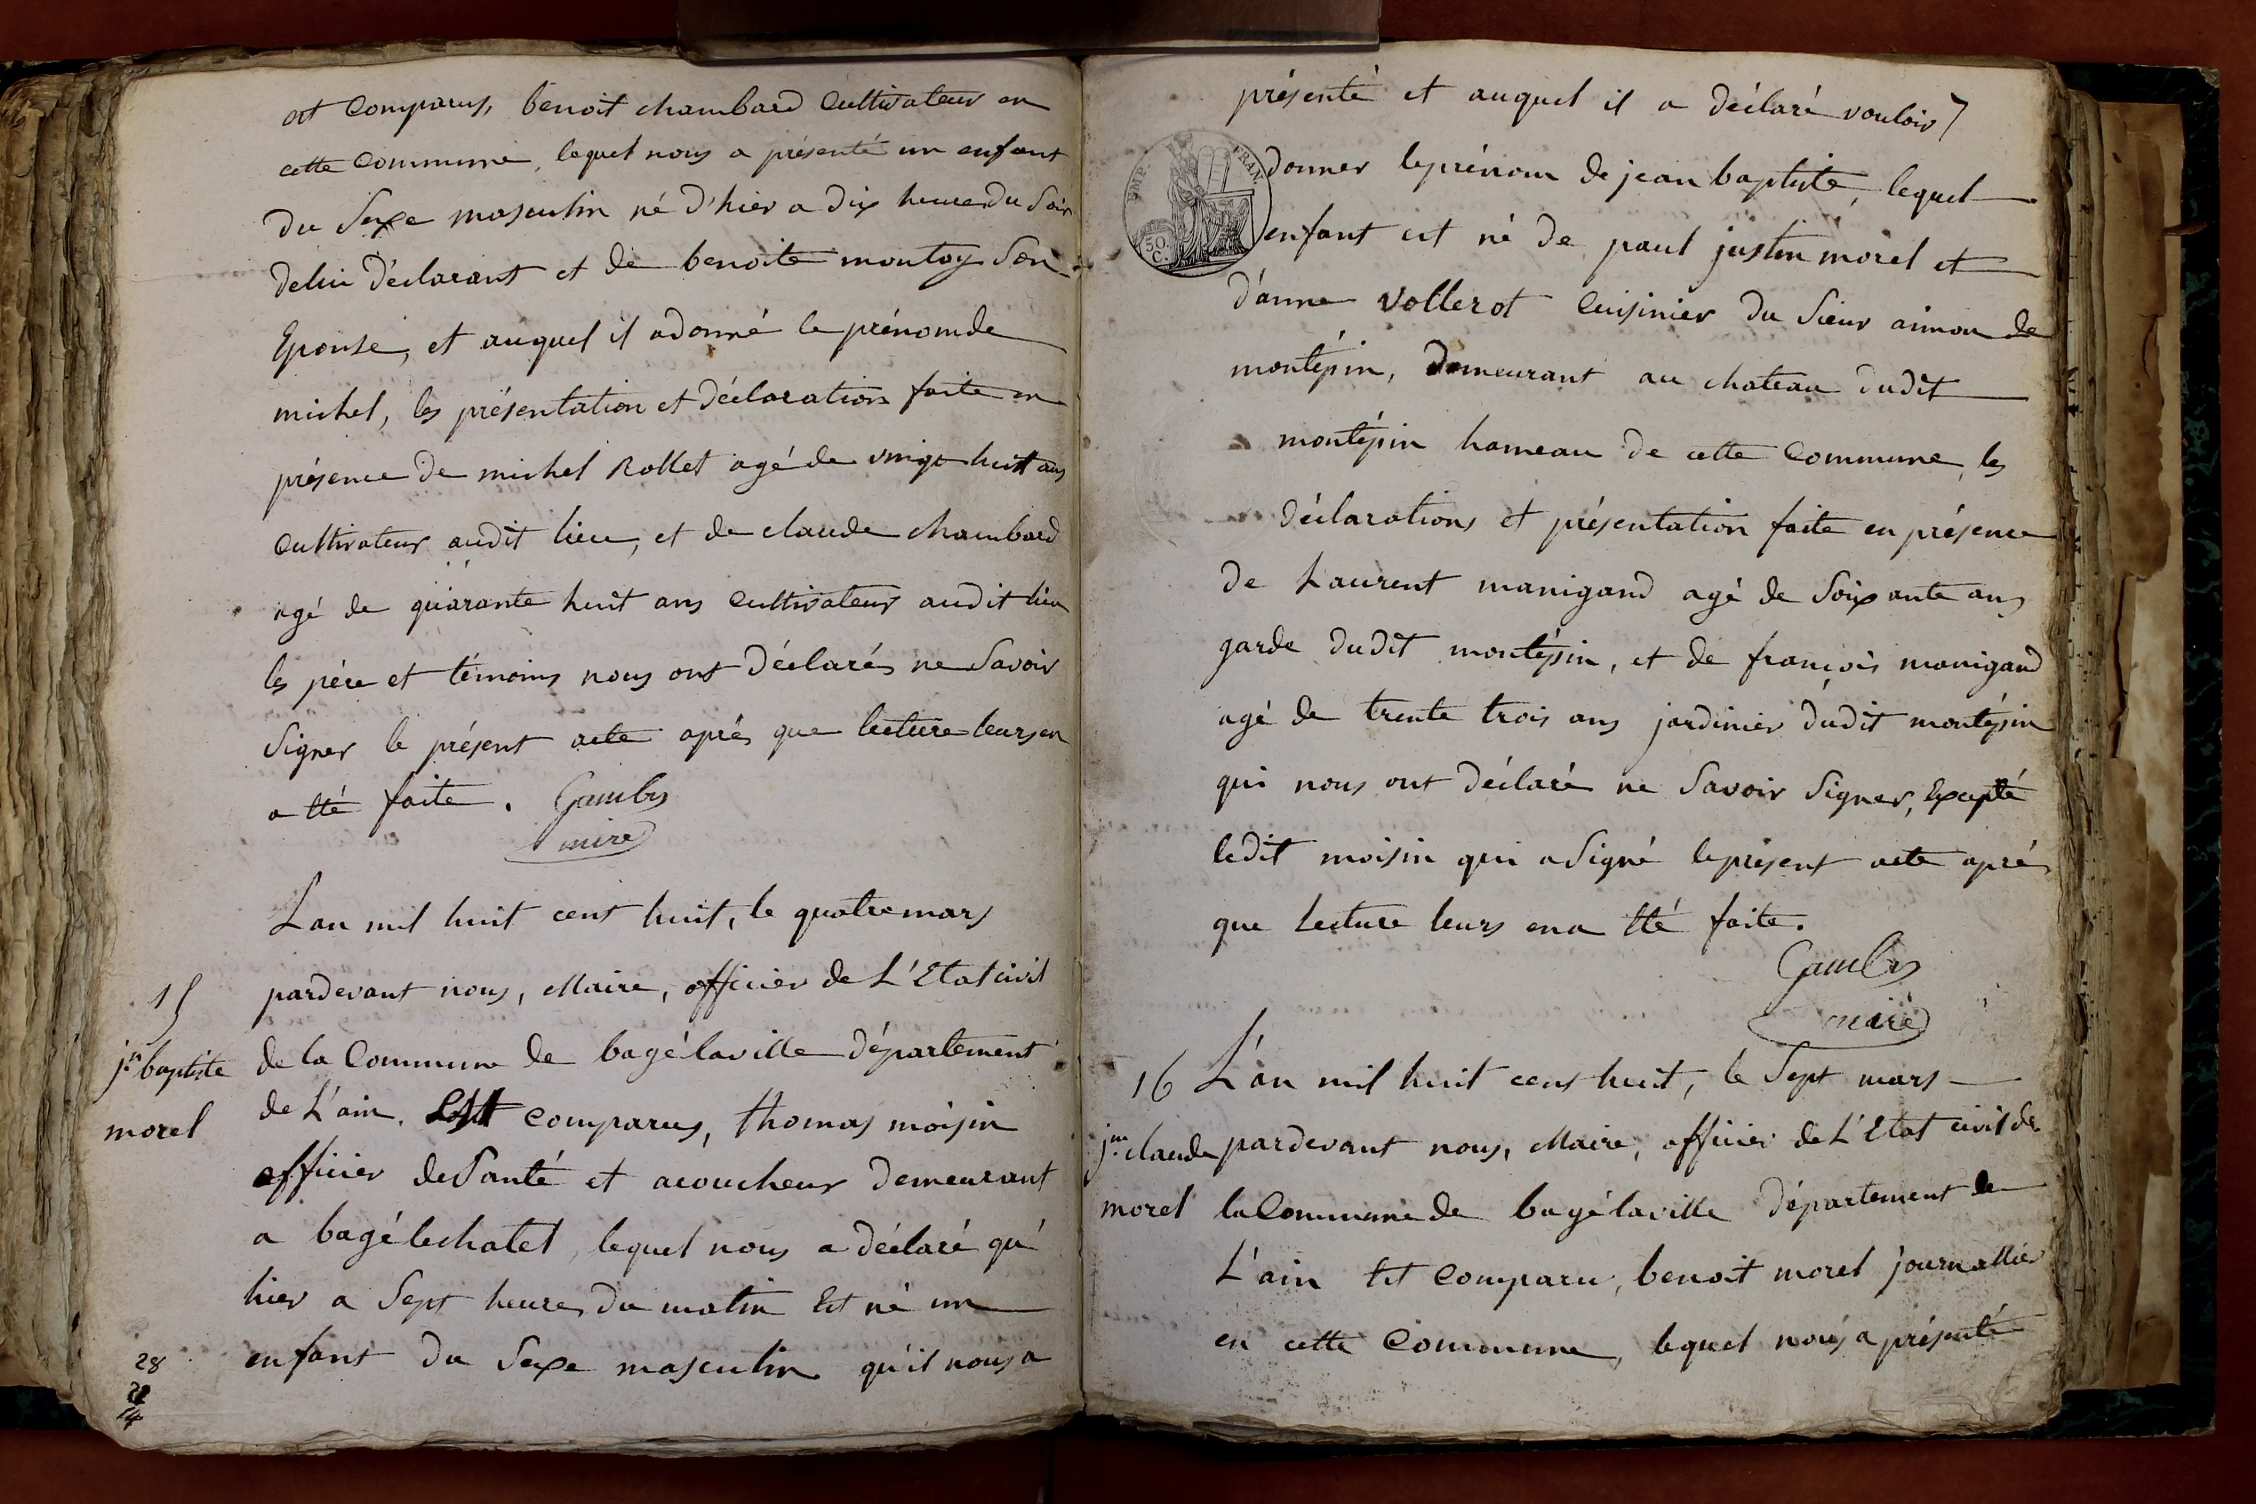 est comparus, benoit chambard Cultivateur en
cette Commune, lequel nous a présenté un enfant
du Sexe masculin né d'hier a dix heure du Soir
delui déclarant et de benoite montoy Son
Epouse, et auquel il adonné le prénomde
michel, les présentation et déclaration faite en
présence de michel Rollet agé de vingt huit ans
Cultivateur audit lieu, et de claude chambard
agé de quarante huit ans Cultivateur audit lieu
les pére et témoins nous ont déclarés ne Savoir
Signer le présent acte aprés que lecture leurs en
a Eté faite. Gambs
mire
Lan mil huit cent huit, le quatre mars
15
pardevant nous, Maire, officier de L'Etat civil
jn baptiste
de la Commune de bagélaville département
morel
de L'ain. Est comparus, thomas moisin
officier de Santé et acoucheur demeurant
a bagélechatel, lequel nous a déclaré qu'
hier a Sept heures du matin Est né un
enfant du Sexe masculin qu'il nous a
28
14
présenté et auquel il a déclaré vouloir 7
EMP. FRAN.
50. C.
donner leprénom de jean baptiste, lequel
enfant est né de paul justin morel et
d'anne vollerot Cuisinier du Sieur aimon de
montépin, demeurant au chateau dudit
montépin hameau de cette Commune, les
déclarations et présentation faite en présence
de Laurent manigand agé de Soixante ans
garde dudit montépin, et de françois manigand
agé de trente trois ans jardinier dudit montépin
qui nous ont déclaré ne Savoir Signer, Excepté
ledit moisin qui a Signé leprésent acte aprés
que Lecture leurs ena Eté faite.
Gambs
mire
16 L'an mil huit cent huit, le Sept mars
jn claude pardevant nous, Maire, officier de L'Etat civil de
morel la Commune de bagélaville département de
L'ain Est Comparu, benoit morel journallier
en cette Commune, lequel nous a présenté